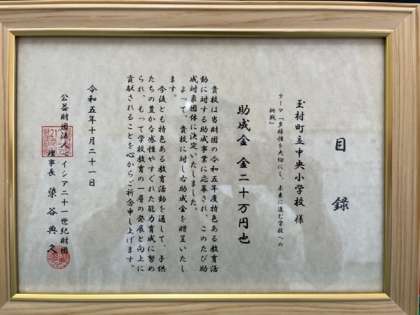 目録
玉村町立中央小学校 様
テーマ「多様性を大切にし、未来に進む学校への
挑戦」
助成金 金二十万円也
貴校は当財団の令和五年度特色ある教育活
動に対する助成事業に応募され、このたび助
成対象団体に決定いたしました。
よって、貴校に対し右助成金を贈呈いたし
ます。
今後とも特色ある教育活動を通して、子供
たちの豊かな感性やすぐれた能力育成に努め
られ、もって学校教育の一層の発展と向上に
貢献されることを心からご祈念申し上げます。
令和五年十月二十一日
公益財団法人 ベイシア二十一世紀財団
理事長 染谷典久